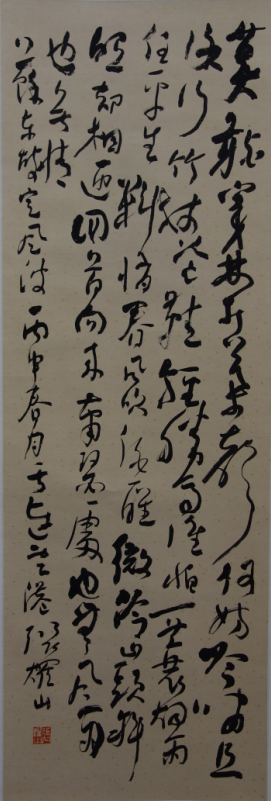 莫聽穿林打葉聲何妨吟嘯且
徐行竹杖芒鞋輕勝馬誰怕一蓑烟雨
任平生料峭春風吹酒醒微冷山頭斜
照却相迎回首向來蕭瑟處也無風雨
也無晴
東坡定風波丙申春月于連雲港張耀山